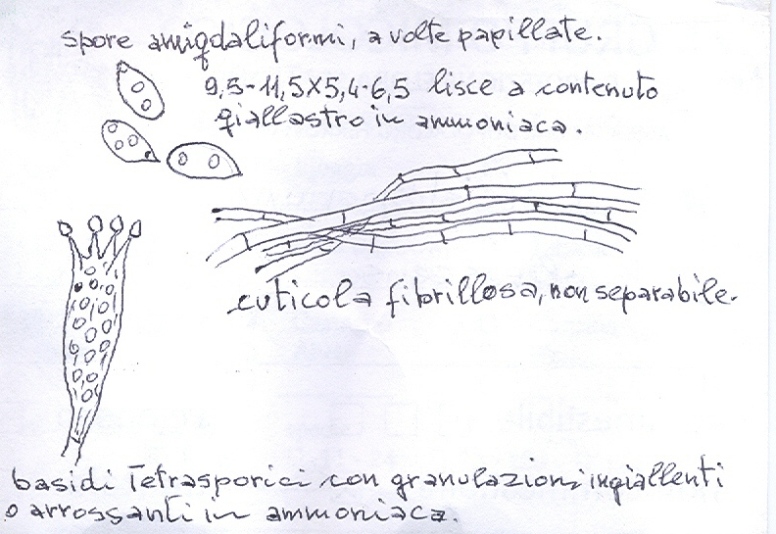 spore amigdaliformi, a volte papillate.
9,5-11,5X5,4-6,5 lisce a contenuto
giallastro in ammoniaca.
cuticola fibrillosa, non separabile.
basidi Tetrasporici con granulazioni ingiallenti
o arrossanti in ammoniaca.